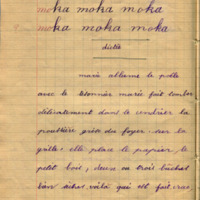 moka moka moka
moka moka moka
dictée
marie allume le poêle
avec le tisonnier marie fait tomber
délicatement dans le cendrier la
poussière grise du foyer. sur la
grille elle place le papier, le
petit bois, deux ou trois bûchet
bien sèches. voilà qui est fait.